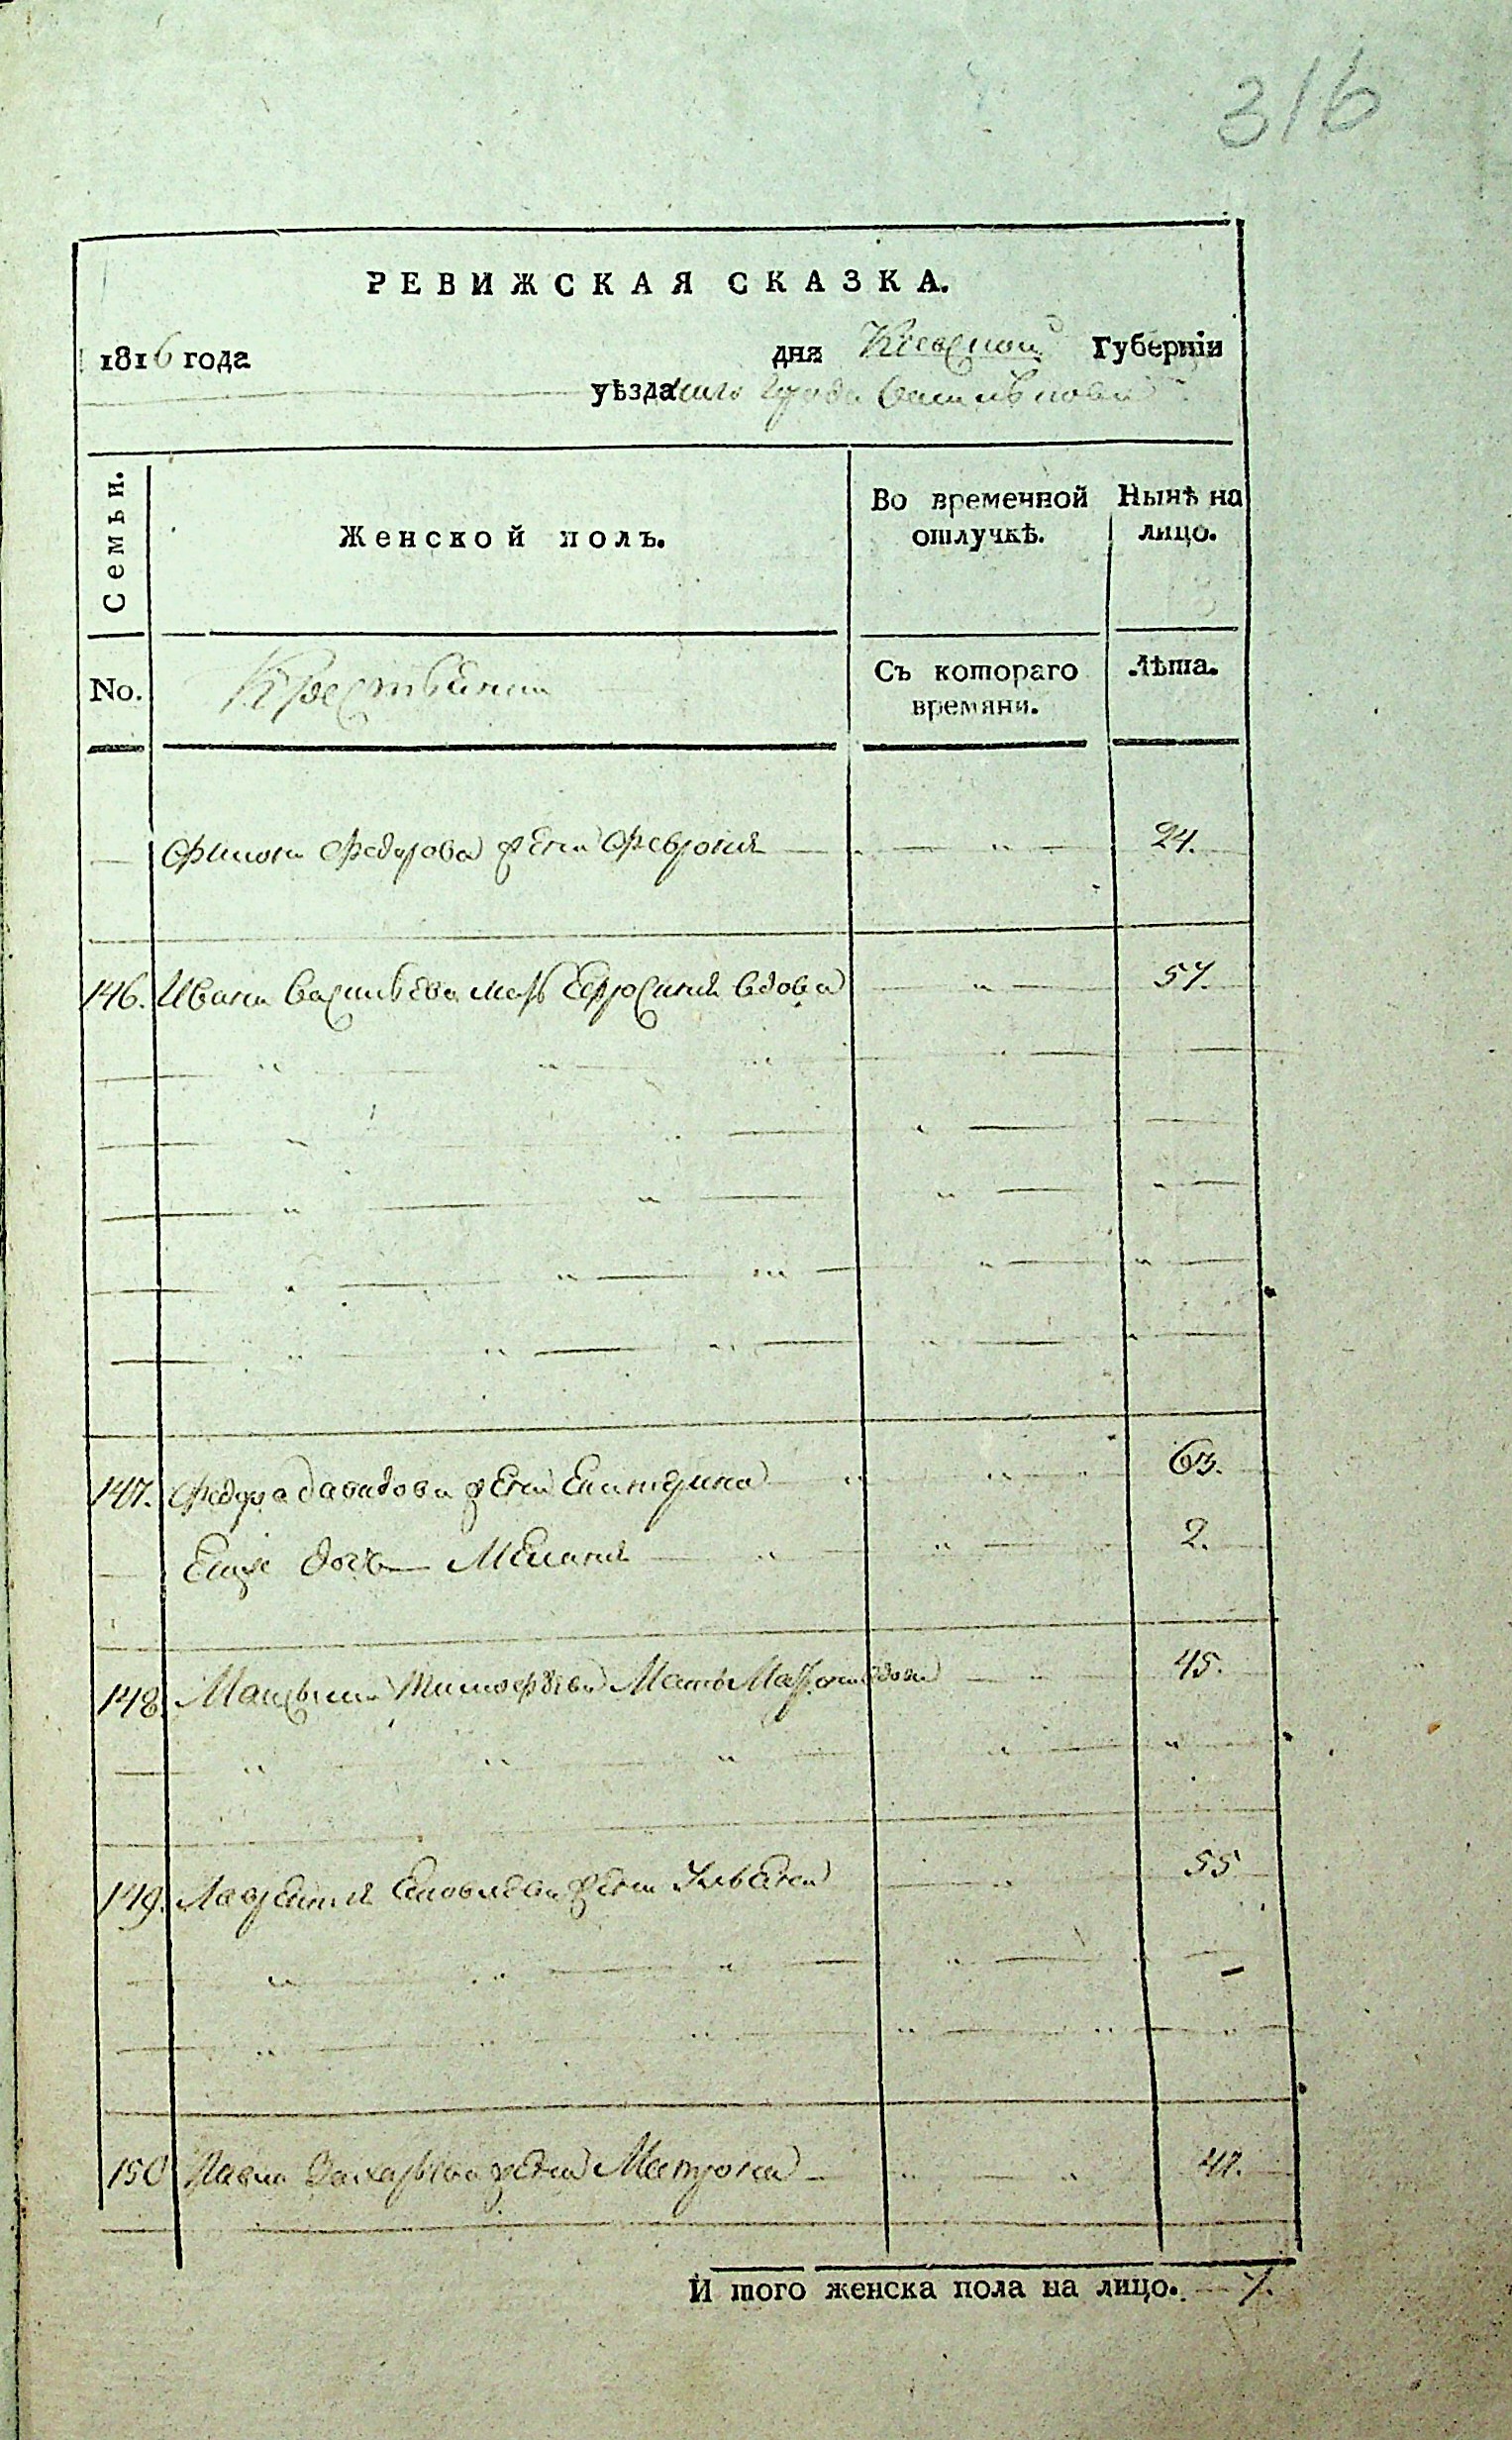 316
РЕВИЖСКАЯ СКАЗКА.
1816 года дня Кіевской Губерніи
уѣзда города Василькова
Семьи. Женской полъ. Во временной отлучкѣ. Нынѣ на лицо.
No. Крестьяни Съ котораго времяни. Лѣта.
Филипа Федорова жена Феврония 24.
146. Ивана Васильева мать Ефросиния вдова 57.
147. Федора Давидова жена Екатерина 63.
Еище дочь Мелания 2.
148. Максыма Тимофѣева Мать вдова 45.
149. Лаврентия жена Ульяна 55
150 Павла Захарьева жена Матрона 41.
И того женска пола на лицо. 7.